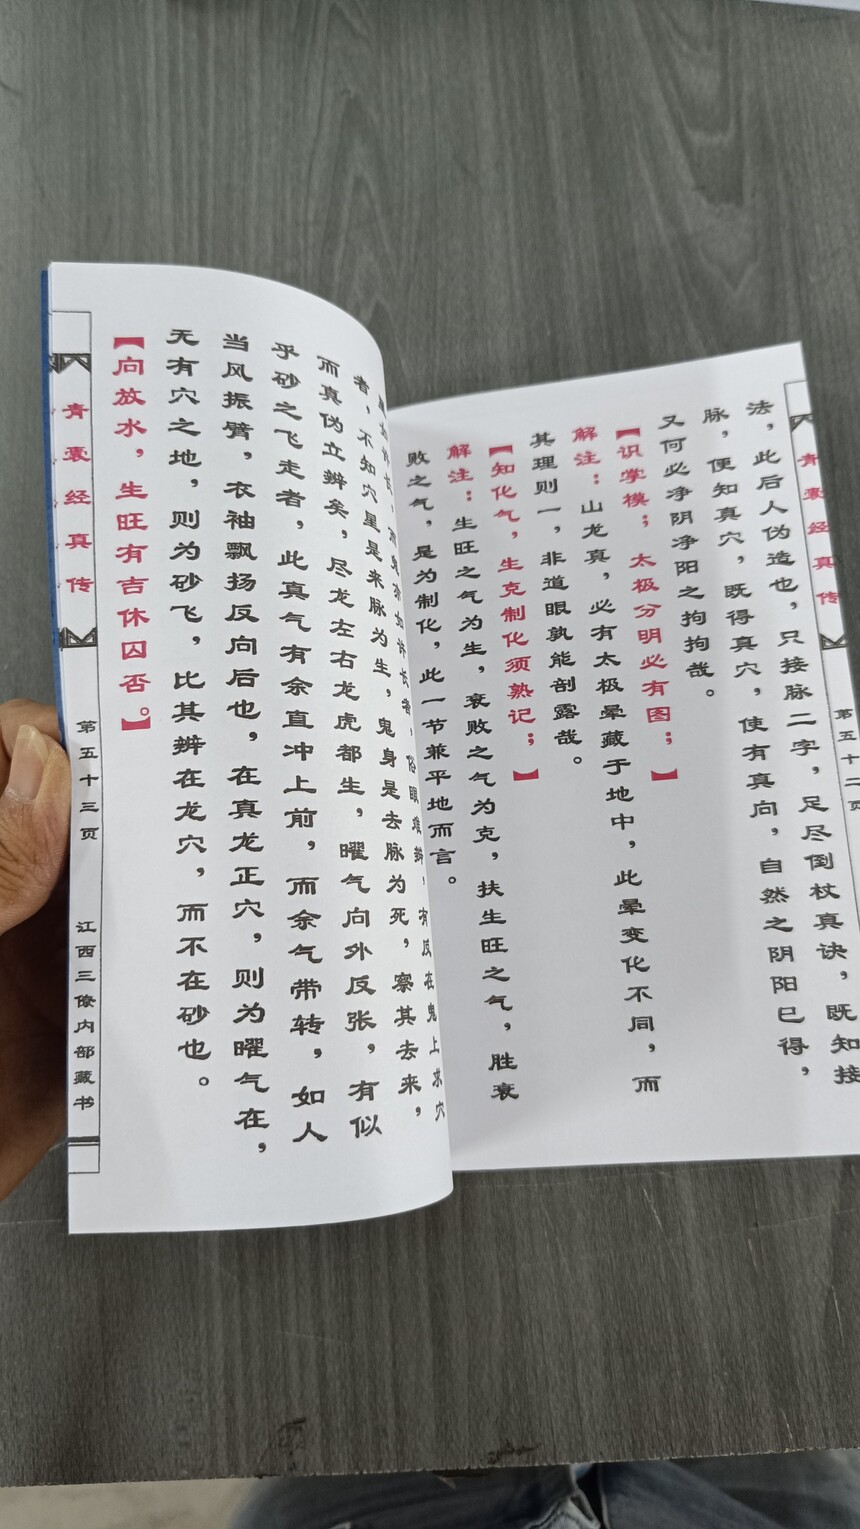 青囊经真传
第五十二页
法，此后人伪造也，只接脉二字，足尽倒杖真诀，既知接
脉，便知真穴，既得真穴，使有真向，自然之阴阳已得，
又何必净阴净阳之拘拘哉。
【识掌模；太极分明必有图；】
解注：山龙真，必有太极晕藏于地中，此晕变化不同，而
其理则一，非道眼孰能剖露哉。
【知化气，生克制化须熟记；】
解注：生旺之气为生，衰败之气为克，扶生旺之气，胜衰
败之气，是为制化，此一节兼平地而言。
俗眼难辨，有反在鬼上求穴
者，不知穴星是来脉为生，鬼身是去脉为死，察其去来，
而真伪立辨矣，尽龙左右龙虎都生，曜气向外反张，有似
乎砂之飞走者，此真气有余直冲上前，而余气带转，如人
当风振臂，衣袖飘扬反向后也，在真龙正穴，则为曜气在，
无有穴之地，则为砂飞，比其辨在龙穴，而不在砂也。
【向放水，生旺有吉休囚否。】
青囊经真传
第五十三页
江西三僚内部藏书